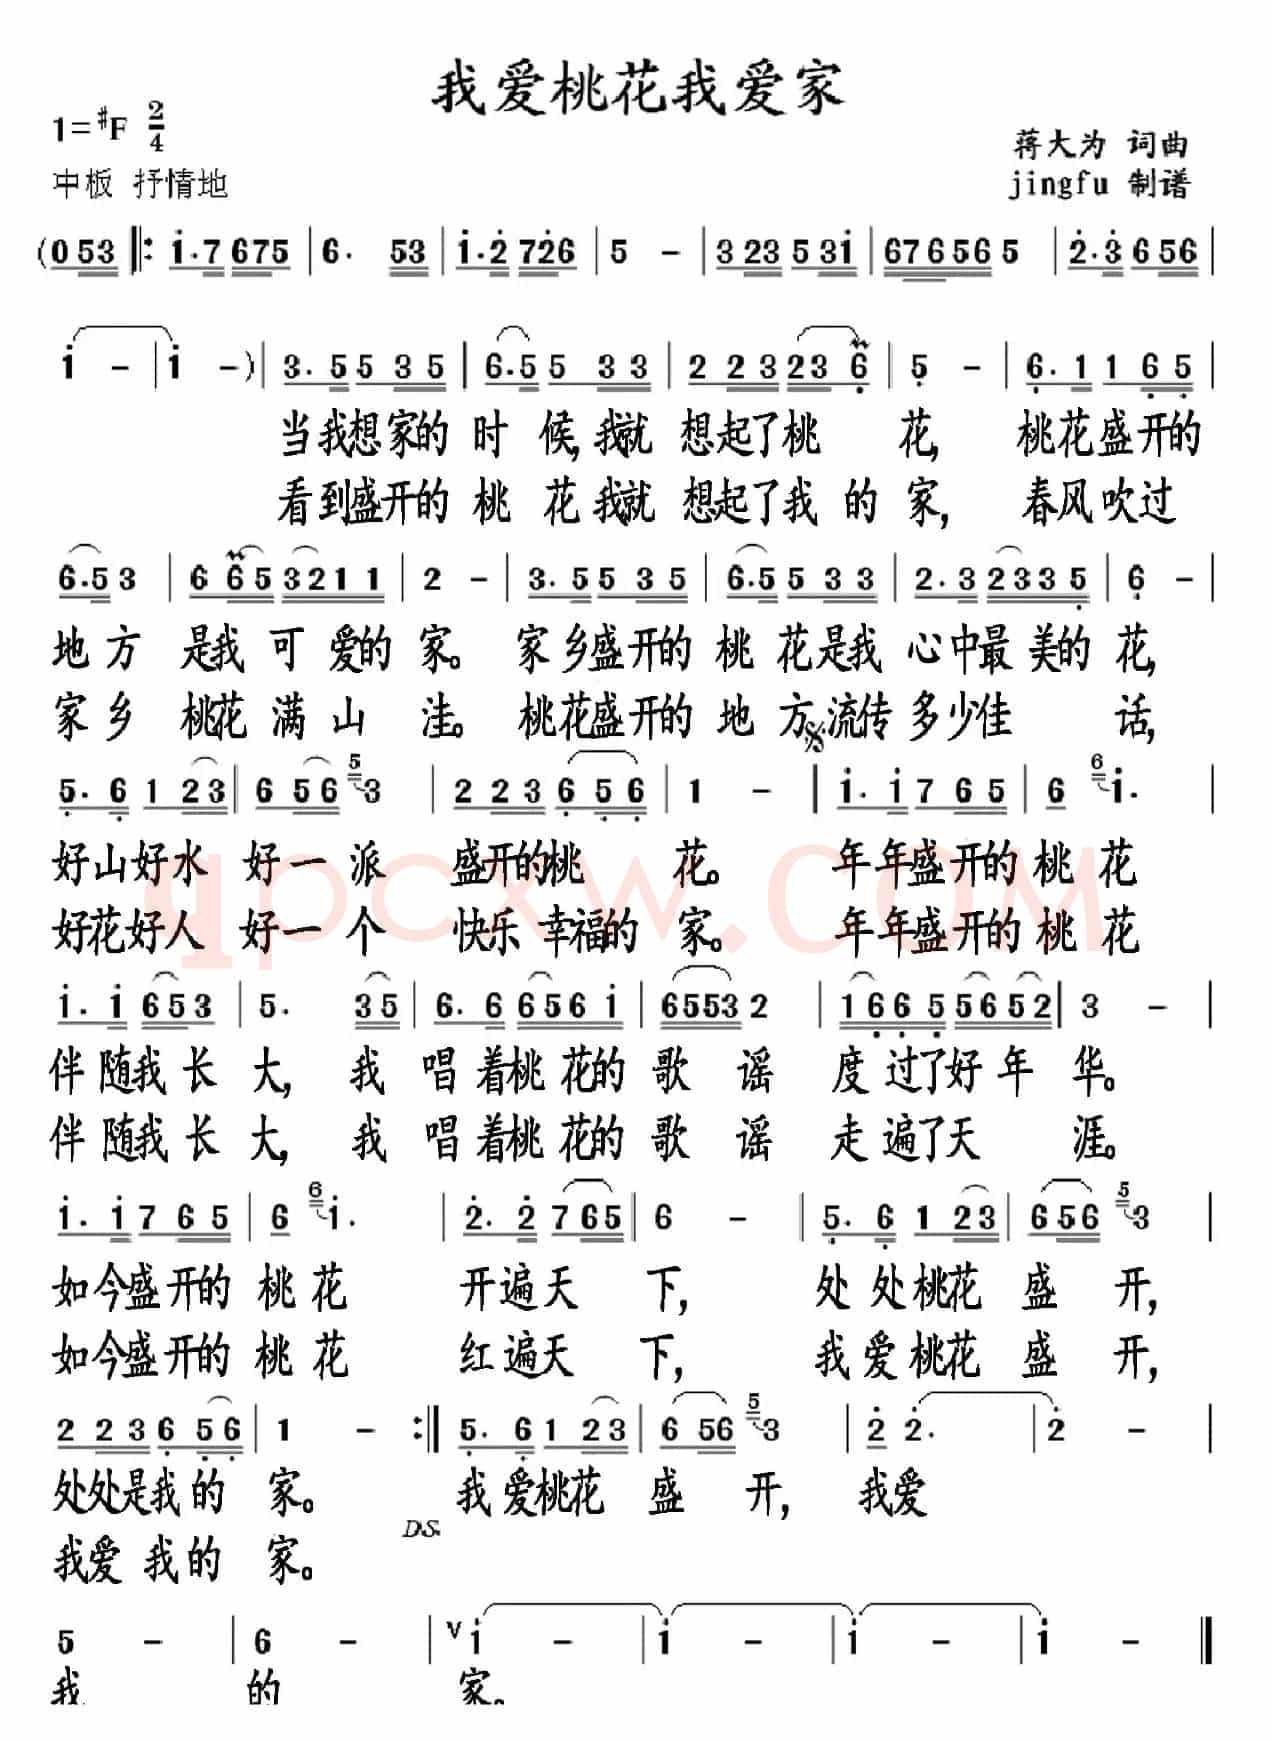 我爱桃花我爱家
1=#F 2/4
蒋大为 词曲
中板 抒情地
jingfu 制谱
(0 53 ‖: i·7 675 | 6· 53 | i·2 726 | 5 - | 3 23 5 3i | 6765 65 5 | 2·3 6 56 |
i - | i - ) | 3·5 5 35 | 6·5 5 33 | 2 23 23 6 | 5 - | 6·1 1 65 |
当我想家的 时 候,我就 想起了桃 花, 桃花盛开的
看到盛开的 桃 花我就 想起了我 的 家, 春风吹过
6·5 3 | 6 65 3211 | 2 - | 3·5 5 35 | 6·5 5 33 | 2·3 2335 | 6 - |
地方 是我 可 爱的 家。 家乡盛开的 桃 花是我 心中最美的 花,
家乡 桃花 满 山 洼。 桃花盛开的 地 方流传 多少佳 话,
5·6 1 23 | 6 56 5 3 | 2 23 6 56 | 1 - | i·i 7 65 | 6 6 i· |
好山好水 好一派 盛开的桃 花。 年年盛开的 桃 花
好花好人 好一个 快乐 幸福的 家。 年年盛开的 桃 花
i·i 653 | 5· 35 | 6·6 656i | 6553 2 | 1665 5652 | 3 - |
伴随我 长 大, 我 唱着桃花的 歌 谣 度过了好年 华。
伴随我 长 大, 我 唱着桃花的 歌 谣 走遍了天 涯。
i·i 7 65 | 6 6 i· | 2·2 765 | 6 - | 5·6 1 23 | 656 5 3 |
如今盛开的 桃 花 开遍天 下, 处处桃花 盛 开,
如今盛开的 桃 花 红遍天 下, 我爱桃花 盛 开,
2 23 6 56 | 1 - :‖ 5·6 1 23 | 6 56 5 3 | 2 2· | 2 - |
处处是我的 家。 我爱桃花 盛 开, 我爱
D.S.
我爱 我的 家。
5 - | 6 - | V i - | i - | i - | i - ‖
我 的 家。
qpcxw.com